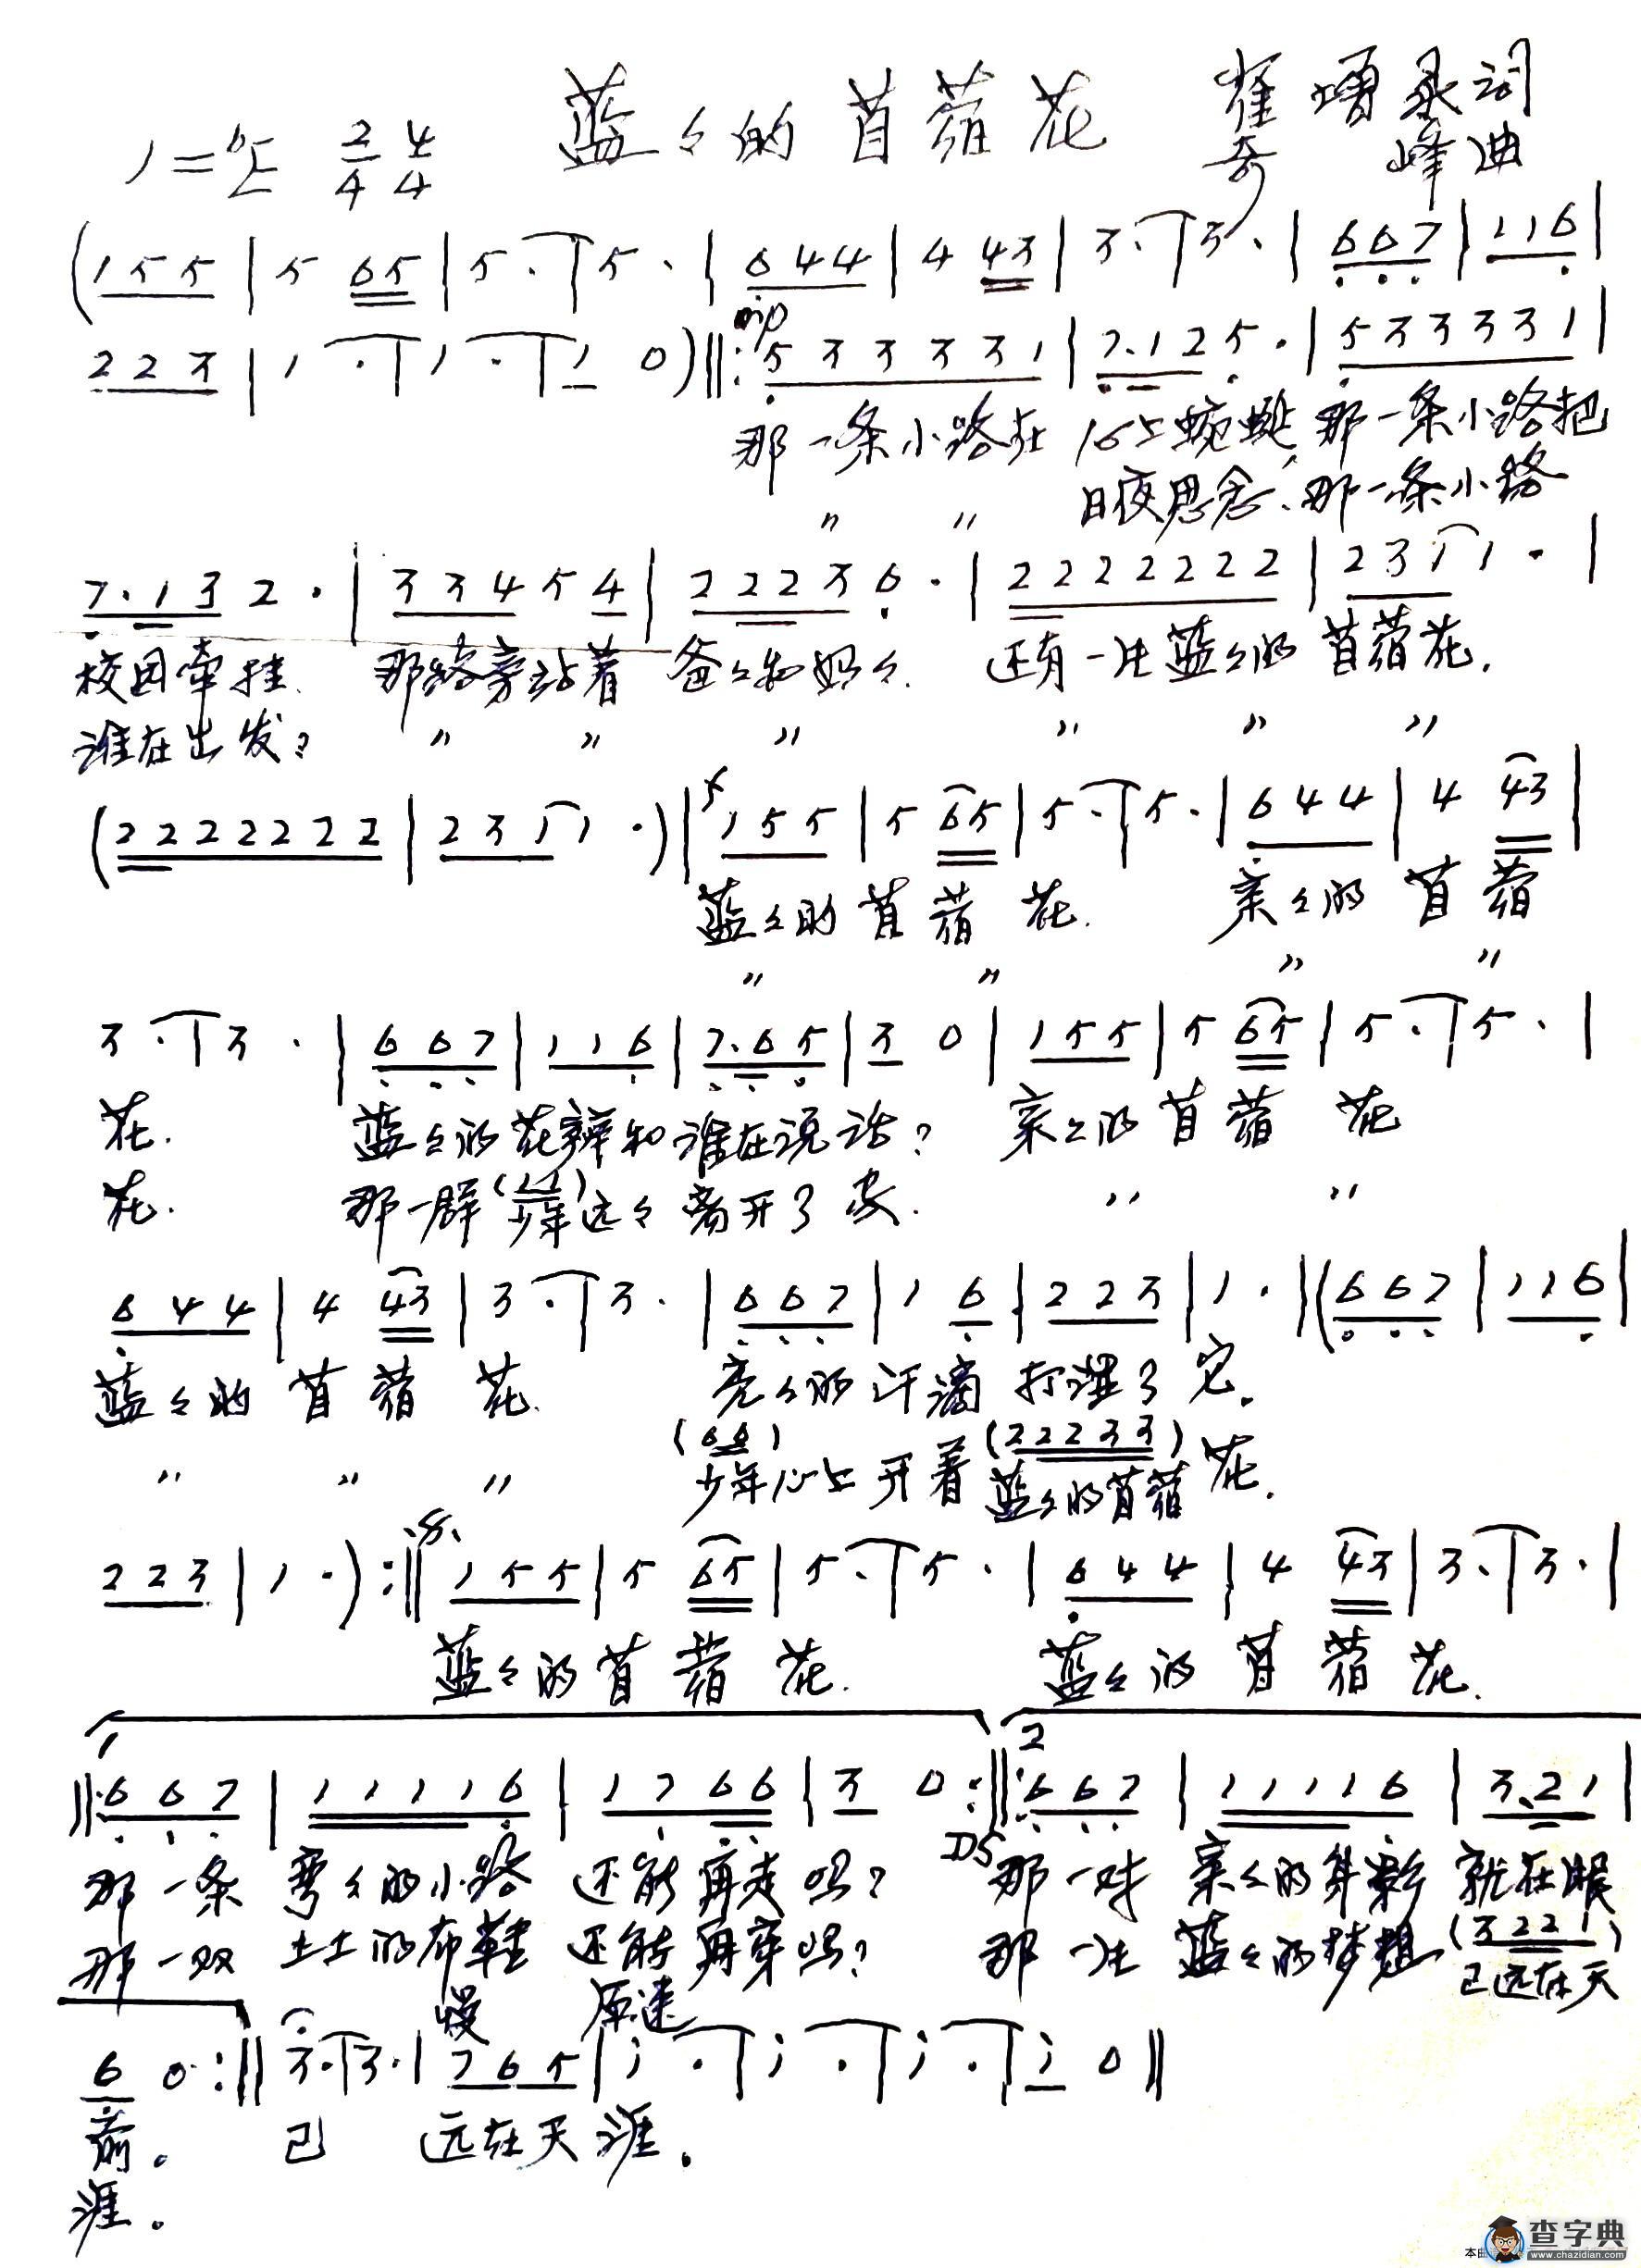 蓝々的苜蓿花 崔增录词
1=♭E 2/4 4/4 奇峰曲
(1 5 5 | 5 65 | 5 · | 5 · | 6 4 4 | 4 43 | 3 · | 3 · | 6 6 7 | 1 1 6 |
mp
2 2 3 | 1 · | 1 · | 1 0) ‖: 5 3 3 3 3 1 | 7·1 2 5 · | 5 3 3 3 3 1 |
那一条小路在 心上蜿蜒,那一条小路把
〃 〃 日夜思念、那一条小路
7·1 3 2 · | 3 3 4 5 4 | 2 2 2 3 6 · | 2 2 2 2 2 2 2 | 2 3 1 1 · |
校园牵挂. 那路旁站着 爸々和妈々. 还有一片蓝々的 苜蓿花.
谁在出发? 〃 〃 〃 〃 〃 〃
f
(2 2 2 2 2 2 2 | 2 3 1 1 ·) | 1 5 5 | 5 65 | 5 · | 5 · | 6 4 4 | 4 43 |
蓝々的 苜 蓿 花. 亲々的 苜 蓿
〃 〃 〃 〃
3 · | 3 · | 6 6 7 | 1 1 6 | 7·6 5 | 3 0 | 1 5 5 | 5 65 | 5 · | 5 · |
花. 蓝々的花瓣和谁在说话? 亲々的苜蓿 花
花. 那一群(11)少年远々离开了家. 〃 〃
6 4 4 | 4 43 | 3 · | 3 · | 6 6 7 | 1 6 | 2 2 3 | 1 · | (6 6 7 | 1 1 6 |
蓝々的 苜 蓿 花. 亮々的汗滴 打湿了它.
(66) (22233)
〃 〃 〃 少年心上开着蓝々的苜蓿 花.
2 2 3 | 1 ·) :‖ 1 5 5 | 5 65 | 5 · | 5 · | 6 4 4 | 4 43 | 3 · | 3 · |
蓝々的苜 蓿 花. 蓝々的 苜 蓿 花.
1 2
‖: 6 6 7 | 1 1 1 1 6 | 1 7 66 | 3 0 :‖: 6 6 7 | 1 1 1 1 6 | 3·2 1 |
DS
那一条 弯々的小路 还能再走吗? 那一对 亲々的身影 就在眼
那一双 土土的布鞋 还能再穿吗? 那一片 蓝々的梦想 (3221)已远在天
慢 原速
6 0 :‖ 3 · | 3 · | 7 6 5 | i · | i · | i · | i 0 ‖
前。 已 远在天涯.
涯。
查字典
www.chazidian.com